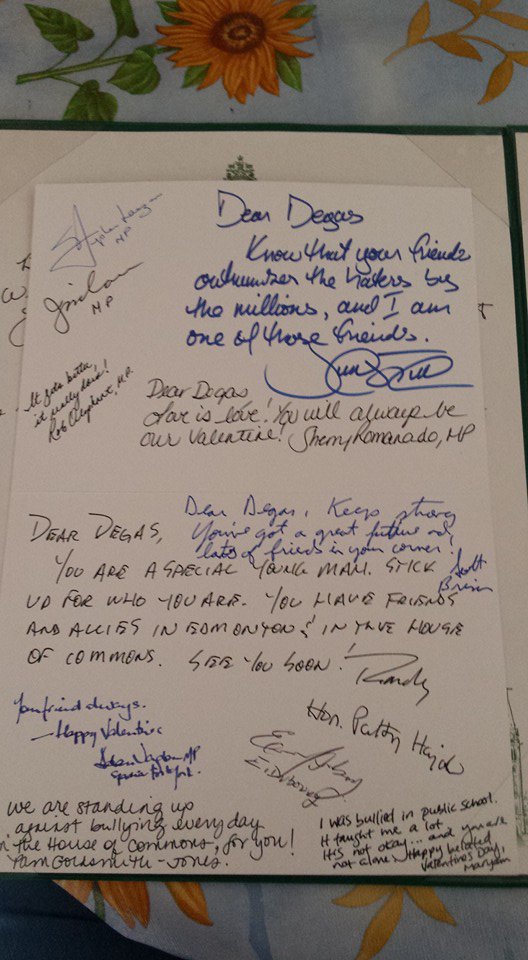 MP
MP
It gets better,
it really does!
Rob Oliphant, MP.
Dear Degas
Know that your friends
outnumber the haters by
the millions, and I am
one of those friends.
Dear Degas
Love is love! You will always be
our Valentine! Sherry Romanado, MP
Dear Degas, Keep strong
You've got a great future and
lots of friends in your corner!
Scott
Brison
DEAR DEGAS,
YOU ARE A SPECIAL YOUNG MAN. STICK
UP FOR WHO YOU ARE. YOU HAVE FRIENDS
AND ALLIES IN EDMONTON & IN THE HOUSE
OF COMMONS. SEE YOU SOON! Randy
Your friend always.
—Happy Valentine
MP
Hon. Patty Hajdu
We are standing up
against bullying everyday
in the House of Commons, for you!
Pam Goldsmith-Jones.
I was bullied in public school.
It taught me a lot.
It's not okay... and you are
not alone. Happy belated
Valentine's Day,
Maryam